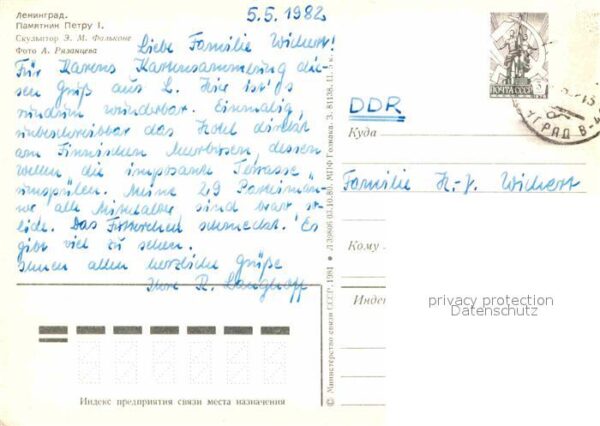 5.5.1982
Ленинград.
Памятник Петру I.
Скульптор Э. М. Фальконе
Фото А. Рязанцева
Liebe Familie Wichert!
Für Karens Kartensammlung die-
sen Gruß aus L. Hier ist's
rundrum wunderbar. Einmalig,
unbeschreibbar das Hotel direkt
am Finnischen Meerbusen, dessen
Wellen die imposante Terrasse
umspülen. Meine 29
alle sind
Das schmeckt. Es
gibt viel zu sehen.
Ihnen allen herzliche Grüße
Ihre R. Langhoff
Индекс предприятия связи места назначения
© Министерство связи СССР. 1981 ♦ Л 39806 03.10.80. МПФ Гознака. З. 81138. 11,5 к.
ПОЧТА СССР
DDR
Куда
Familie H.-J. Wichert
Кому
Индекс
privacy protection
Datenschutz